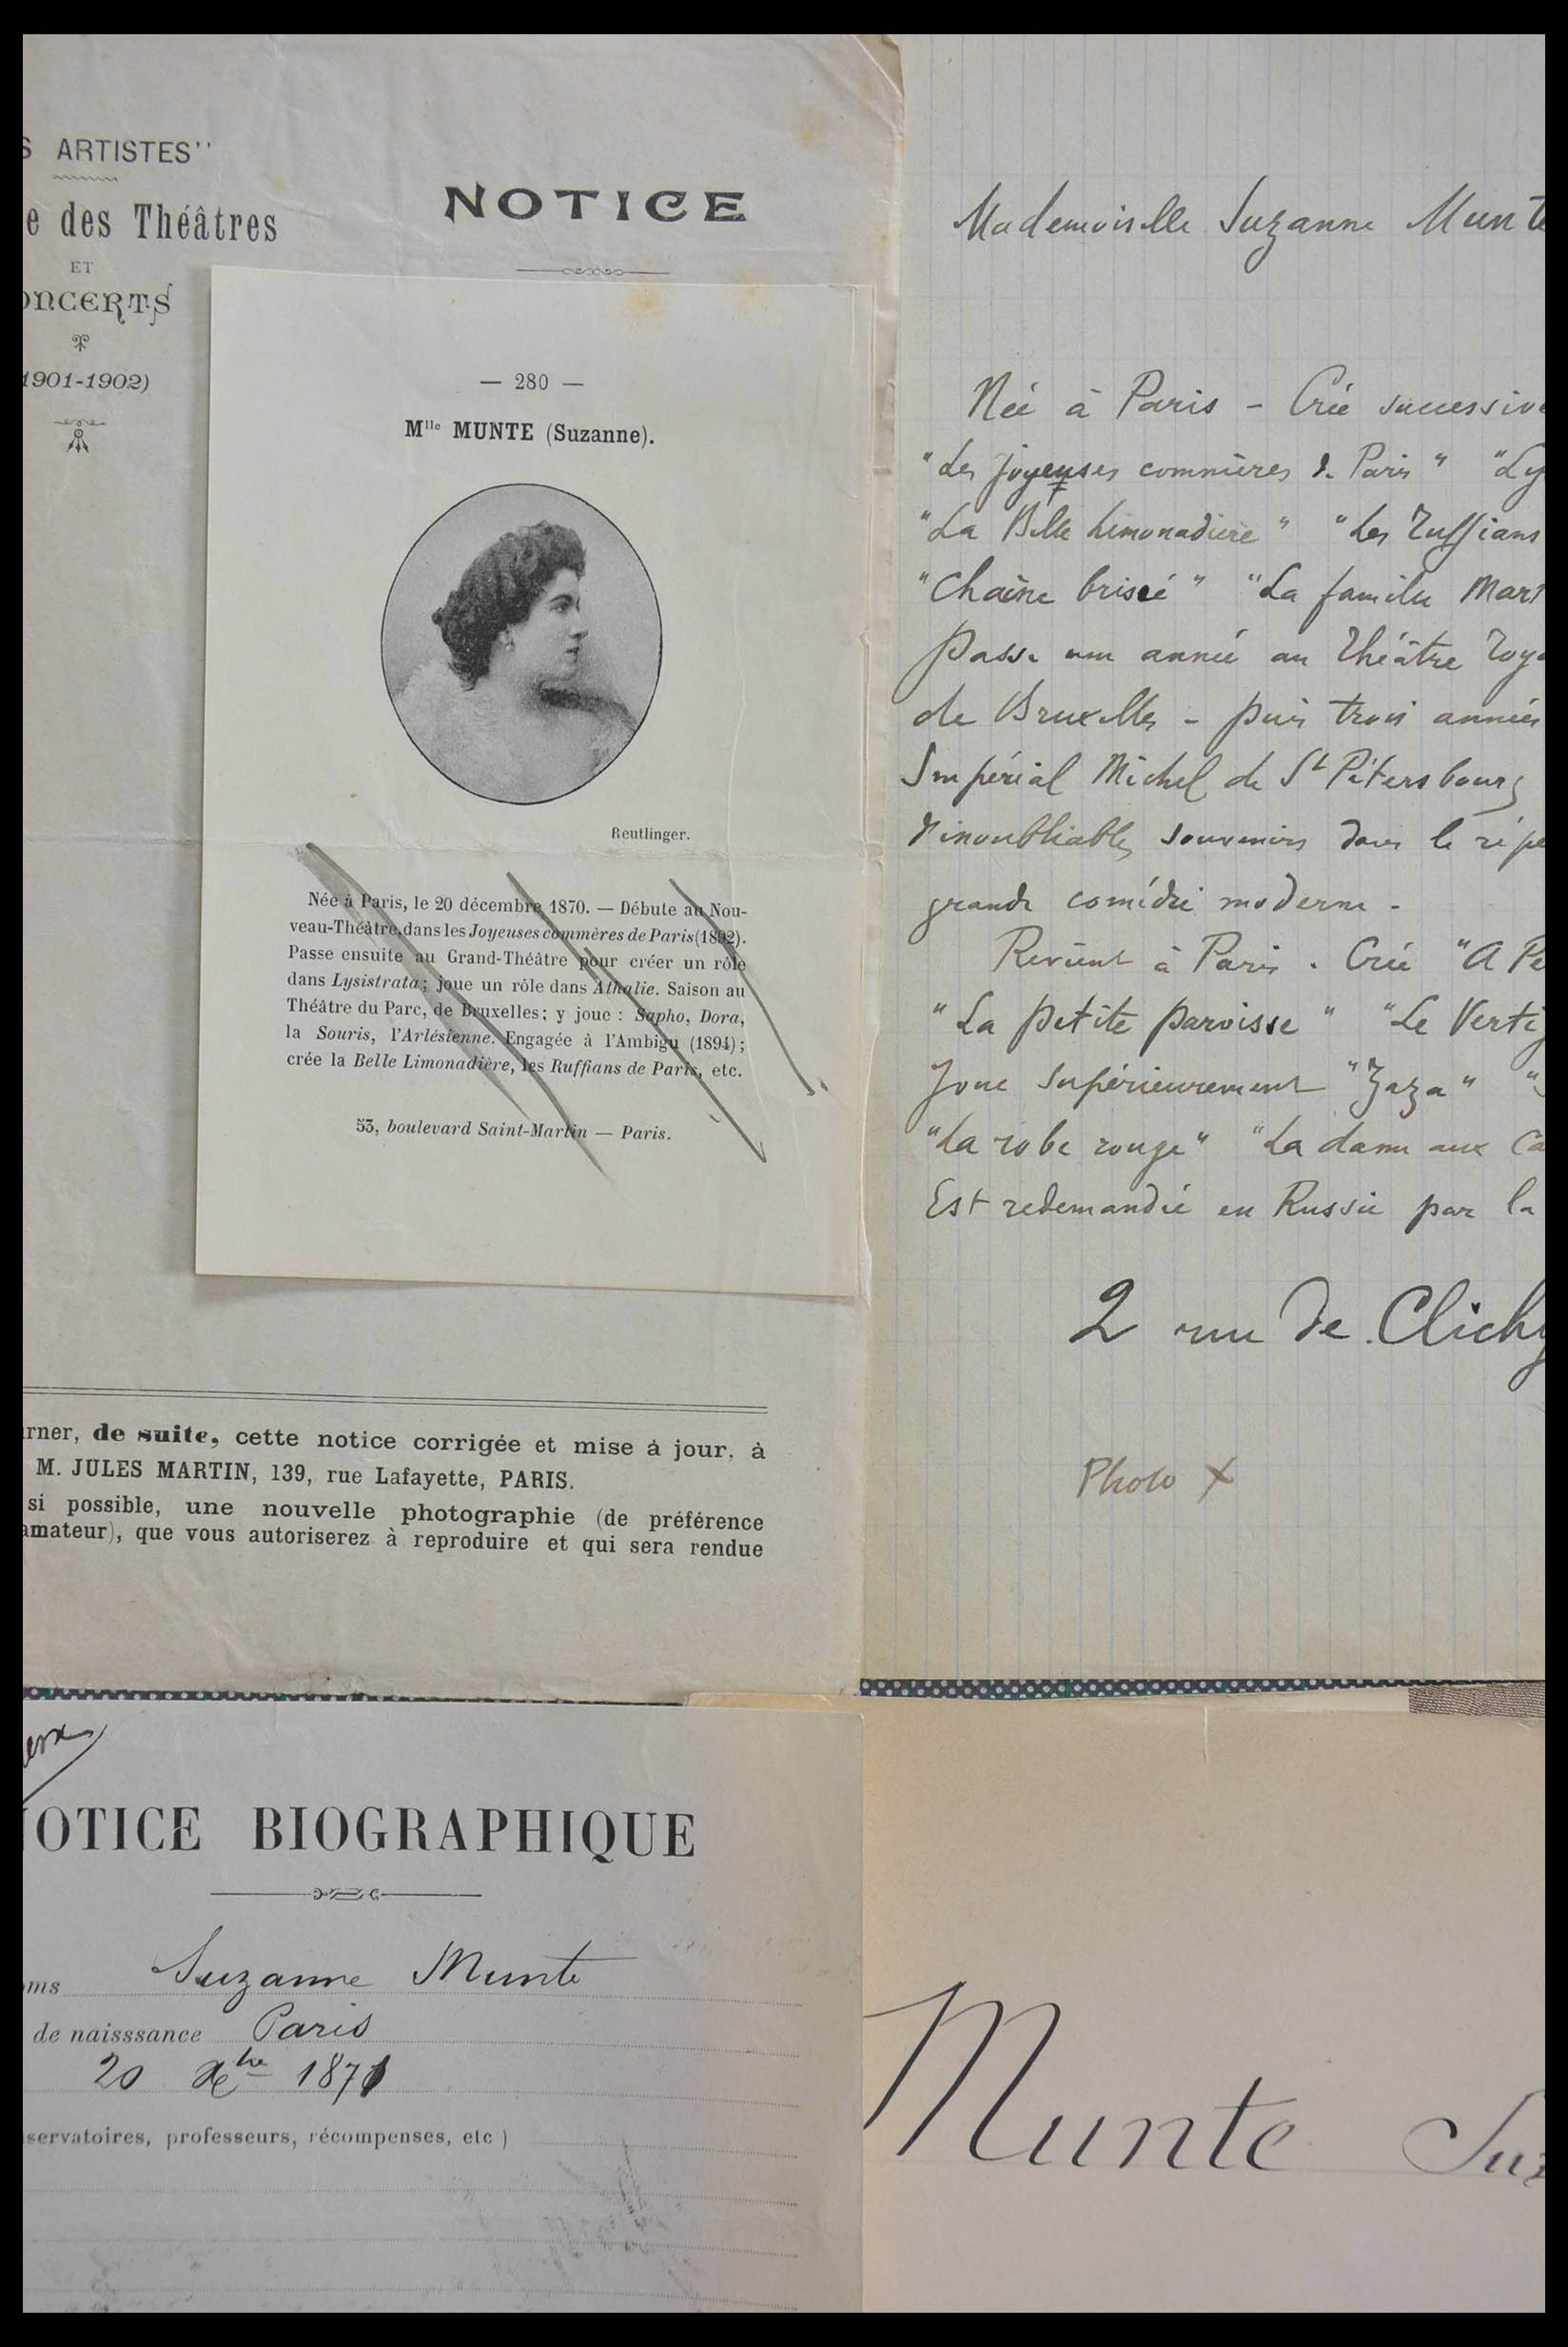 ARTISTES''
e des Théâtres
ET
ONCERTS
1901-1902)
NOTICE
— 280 —
Mlle MUNTE (Suzanne).
Reutlinger.
Née à Paris, le 20 décembre 1870. — Débute au Nou-
veau-Théâtre, dans les Joyeuses commères de Paris (1892).
Passe ensuite au Grand-Théâtre pour créer un rôle
dans Lysistrata; joue un rôle dans Athalie. Saison au
Théâtre du Parc, de Bruxelles; y joue : Sapho, Dora,
la Souris, l'Arlésienne. Engagée à l'Ambigu (1894);
crée la Belle Limonadière, les Ruffians de Paris, etc.
53, boulevard Saint-Martin — Paris.
rner, de suite, cette notice corrigée et mise à jour, à
M. JULES MARTIN, 139, rue Lafayette, PARIS.
si possible, une nouvelle photographie (de préférence
amateur), que vous autoriserez à reproduire et qui sera rendue
Mademoiselle Suzanne Munte
Née à Paris - Crée successive
"Les joyeuses commères de Paris" "Ly
"La Belle Limonadière" "Les Ruffians
"Chaîne brisée" "La famille Mart
Passe une année au Théâtre Roya
de Bruxelles - puis trois années
Impérial Michel de St Pétersbourg
d'inoubliables souvenirs dans le répe
grande comédie moderne -
Revient à Paris. Crée "A Pe
"La petite paroisse" "Le Verti
Joue supérieurement "Zaza" "
"La robe rouge" "La dame aux Ca
Est redemandée en Russie par la
2 rue de Clichy
Photo X
OTICE BIOGRAPHIQUE
oms Suzanne Munte
de naisssance Paris
20 Xbre 1871
servatoires, professeurs, récompenses, etc )
Munte Suz